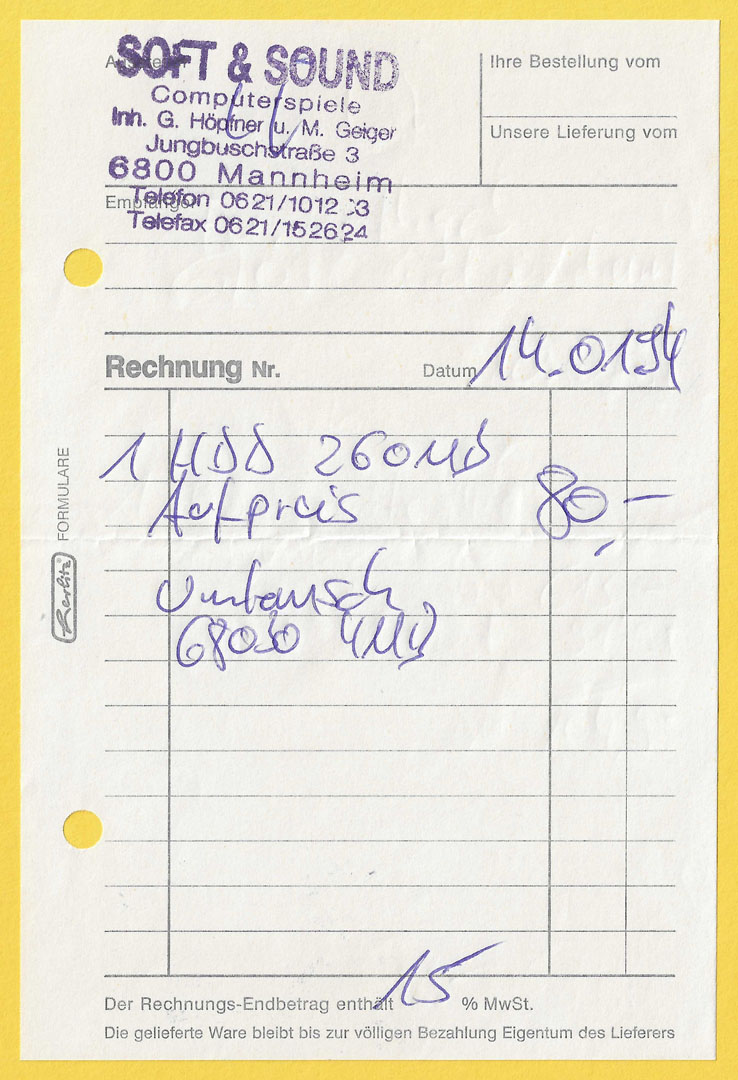 SOFT & SOUND
Computerspiele
Inh. G. Höpfner u. M. Geiger
Jungbuschstraße 3
6800 Mannheim
Telefon 0621/1012 3
Telefax 0621/152624
Ihre Bestellung vom
Unsere Lieferung vom
Empfänger
Rechnung Nr.
Datum 14.0194
1 HDD 260MB
Aufpreis 80,-
Umtausch
68030 4MB
FORMULARE
Herlitz
Der Rechnungs-Endbetrag enthält 15 % MwSt.
Die gelieferte Ware bleibt bis zur völligen Bezahlung Eigentum des Lieferers